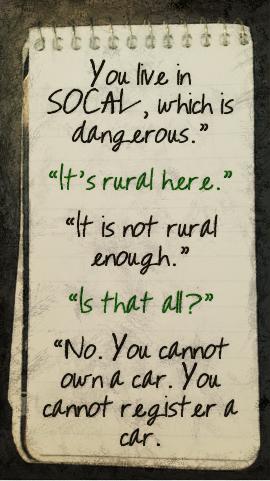 You live in
SOCAL, which is
dangerous.”
“It's rural here.”
“It is not rural
enough.”
“Is that all?”
“No. You cannot
own a car. You
cannot register a
car.